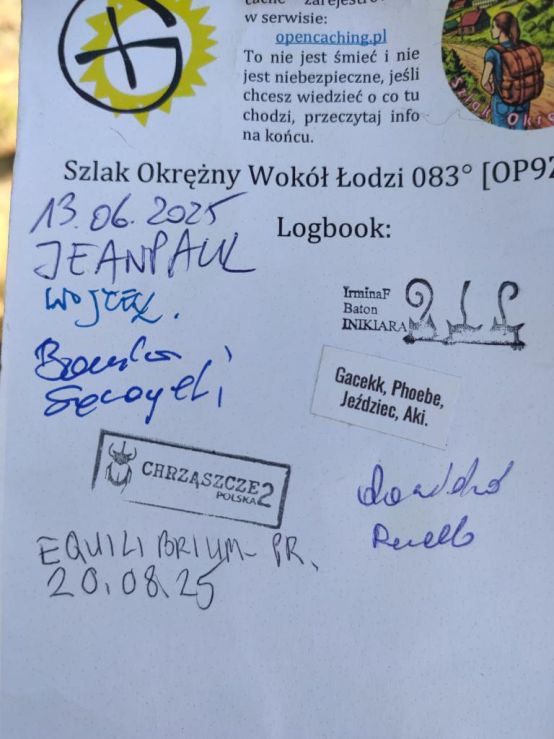 w serwisie:
opencaching.pl
To nie jest śmieć i nie
jest niebezpieczne, jeśli
chcesz wiedzieć o co tu
chodzi, przeczytaj info
na końcu.
Szlak Okrężny Wokół Łodzi 083° [OP9Z
Logbook:
13.06.2025
JEANPAUL
IrminaF
Baton
INIKIARA
Gacekk, Phoebe,
Jeździec, Aki.
CHRZĄSZCZE 2
POLSKA
EQUILIBRIUM-PR.
20.08.25